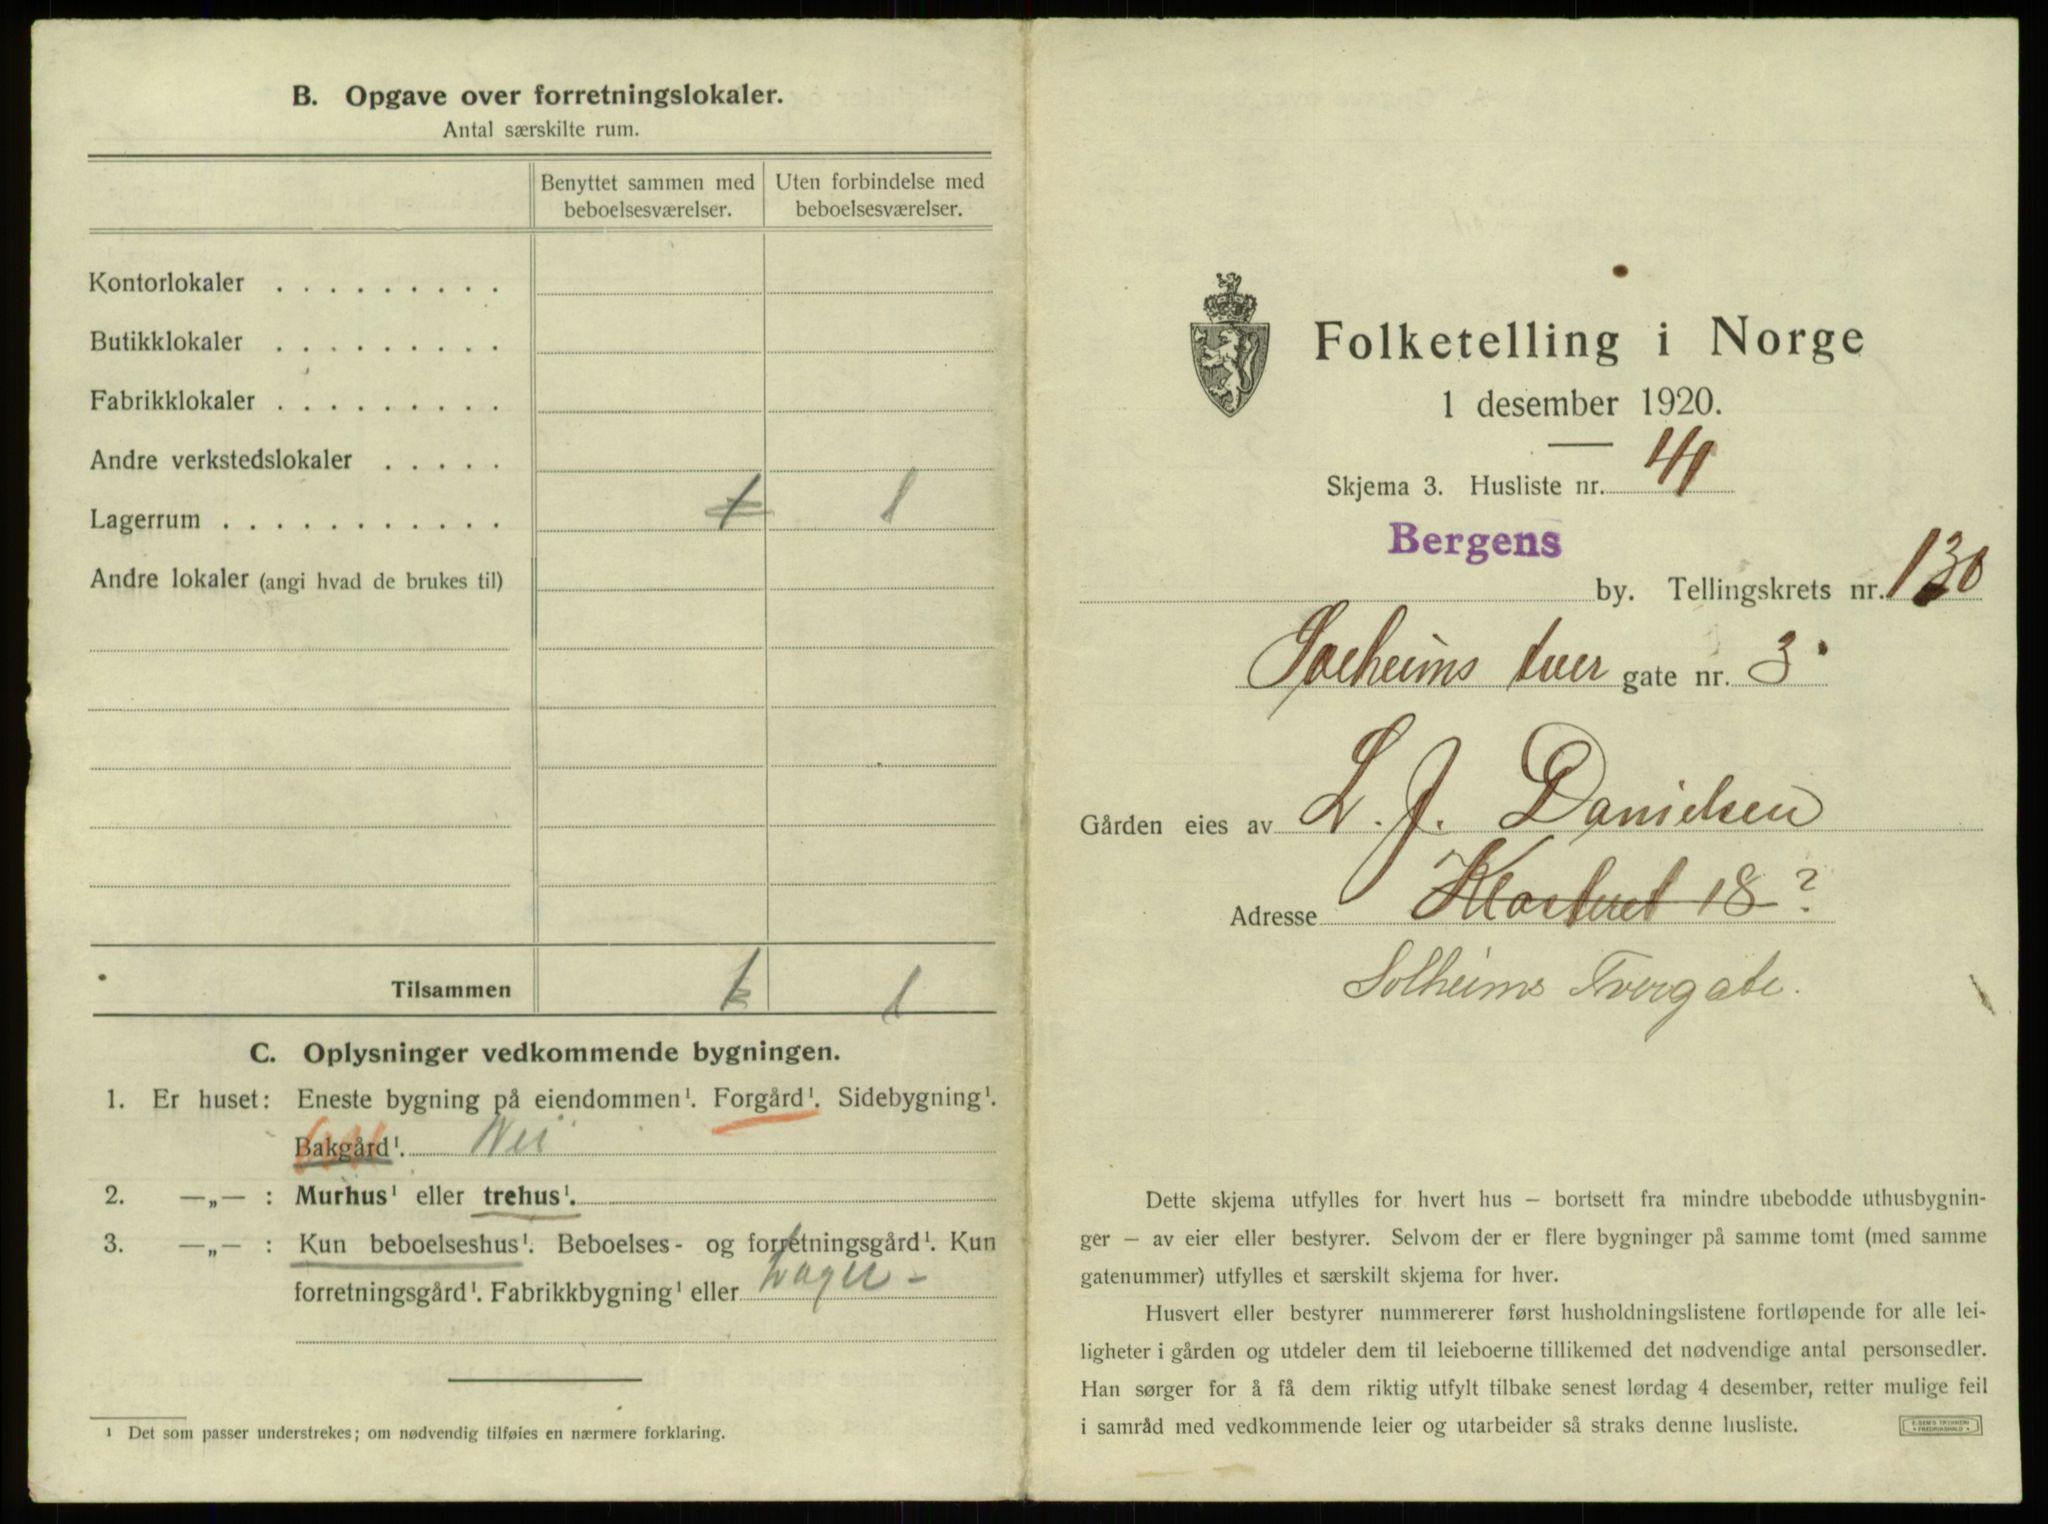 B. Opgave over forretningslokaler.
Antal særskilte rum.
Benyttet sammen med beboelsesværelser.
Uten forbindelse med beboelsesværelser.
Kontorlokaler . . . . . . . . .
Butikklokaler . . . . . . . . .
Fabrikklokaler . . . . . . . . .
Andre verkstedslokaler . . . . .
Lagerrum . . . . . . . . . . . 1 1
Andre lokaler (angi hvad de brukes til)
Tilsammen 1 1
C. Oplysninger vedkommende bygningen.
1. Er huset: Eneste bygning på eiendommen¹. Forgård¹. Sidebygning¹.
Bakgård¹. Nei
2. —„— : Murhus¹ eller trehus¹.
3. —„— : Kun beboelseshus¹. Beboelses- og forretningsgård¹. Kun
forretningsgård¹. Fabrikkbygning¹ eller Lager -
¹ Det som passer understrekes; om nødvendig tilføies en nærmere forklaring.
Folketelling i Norge
1 desember 1920.
Skjema 3. Husliste nr. 41
Bergens
by. Tellingskrets nr. 130
Solheims tver gate nr. 3
Gården eies av L. J. Danielsen
Adresse Klosteret 18 ?
Solheims Tvergate.
Dette skjema utfylles for hvert hus – bortsett fra mindre ubebodde uthusbygnin-
ger – av eier eller bestyrer. Selvom der er flere bygninger på samme tomt (med samme
gatenummer) utfylles et særskilt skjema for hver.
Husvert eller bestyrer nummererer først husholdningslistene fortløpende for alle lei-
ligheter i gården og utdeler dem til leieboerne tillikemed det nødvendige antal personsedler.
Han sørger for å få dem riktig utfylt tilbake senest lørdag 4 desember, retter mulige feil
i samråd med vedkommende leier og utarbeider så straks denne husliste.
E. SEM'S TRYKKERI
FREDRIKSHALD